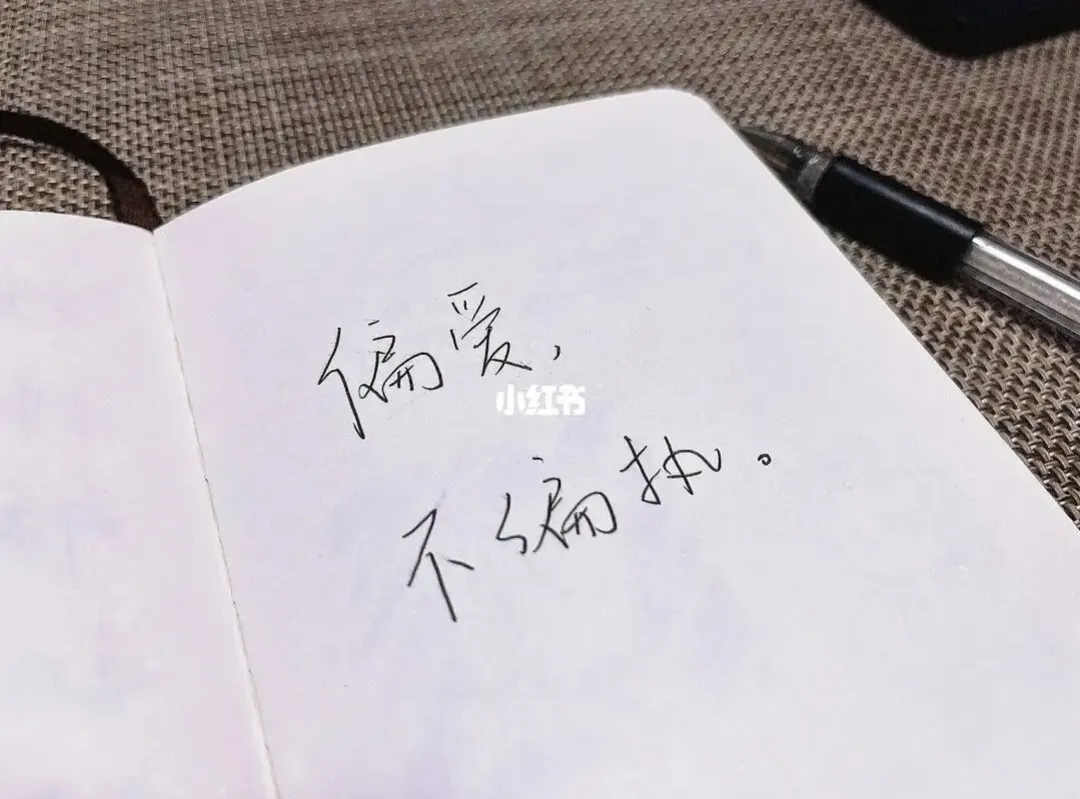 偏爱，
小红书
不偏执。